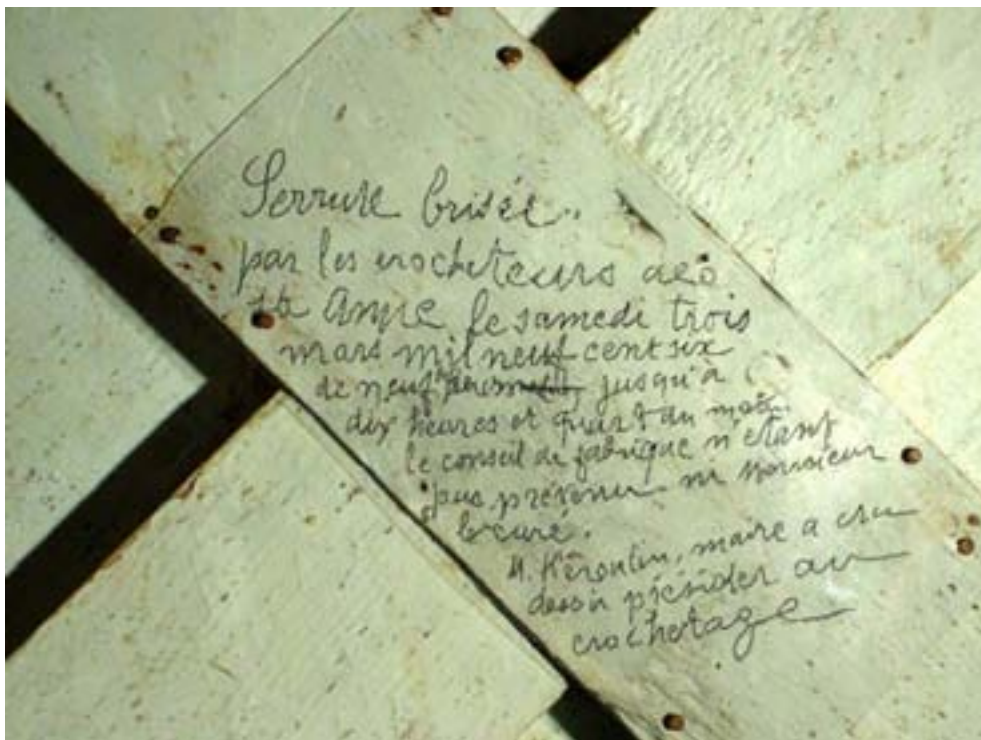 Serrure brisée..
par les crocheteurs de
Ste Anne le samedi trois
mars mil neuf cent six
de neuf heures jusqu'à
dix heures et quart du matin
le conseil de fabrique n'étant
pas prévenu ni monsieur
le curé.
M. Keroulin, maire a cru
devoir présider au
crochetage